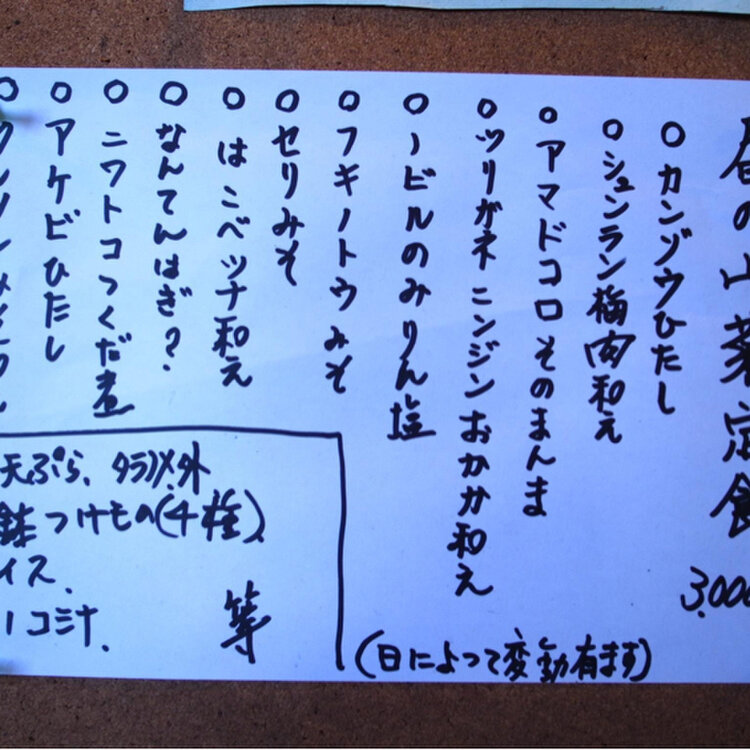 昼の山菜定食
3,000
○カンゾウひたし
○シュンラン梅肉和え
○アマドコロそのまんま
○ツリガネニンジンおかか和え
○ノビルのみりん塩
○フキノトウみそ
○セリみそ
○はこべツナ和え
○なんてんはぎ?
○ニワトコつくだ煮
○アケビひたし
天ぷら、タラノメ外
鉢つけもの(4種)、
イス、
ノコ汁、
等
(日によって変動有ます)